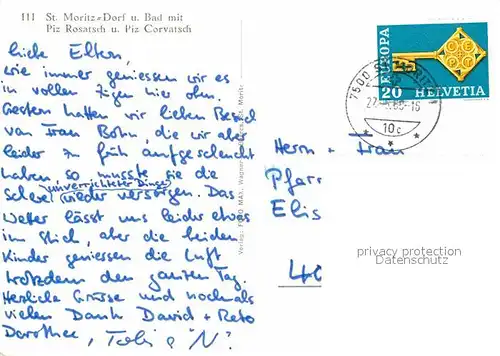 111 St. Moritz-Dorf u. Bad mit
Piz Rosatsch u. Piz Corvatsch
Liebe Eltern,
wie immer geniessen wir es
in vollen Zügen hier oben.
Gestern hatten wir lieben Besuch
von Frau Bohn, die wir aber
leider zu früh aufgescheucht
haben, so musste sie die
unverrichteter Dinge
wieder versorgen. Das
Wetter lässt uns leider etwas
im Stich, aber die beiden
Kinder geniessen die Luft
trotzdem den ganzen Tag.
Herzliche Grüsse und nochmals
vielen Dank David + Reto
Dorothee, Tobi
St. Moritz
EUROPA
CEPT
20 HELVETIA
7500
10c
Herrn + Frau
Pfarr
Elis
privacy protection
Datenschutz